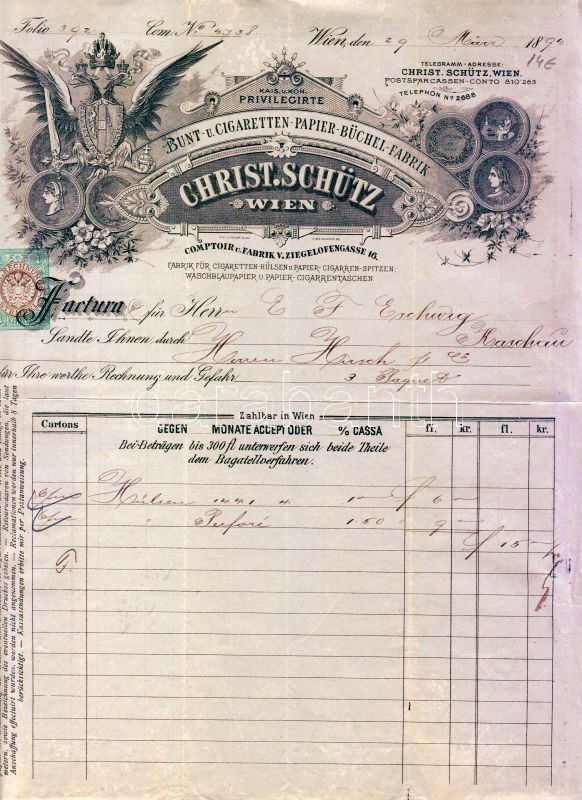 Folio 392. Com. No 4738 Wien, den 29 März 189
14€
TELEGRAMM-ADRESSE:
CHRIST. SCHÜTZ, WIEN.
POSTSPARCASSEN-CONTO 810.263
TELEPHON No 2688
KAIS. U. KÖN.
PRIVILEGIRTE
BUNT- U. CIGARETTEN-PAPIER-BÜCHEL-FABRIK
CHRIST. SCHÜTZ
WIEN
COMPTOIR U. FABRIK V. ZIEGELOFENGASSE 16.
FABRIK FÜR CIGARETTEN-HÜLSEN U. PAPIER-CIGARREN-SPITZEN.
WASCHBLAUPAPIER U. PAPIER-CIGARRENTASCHEN
Factura für Herrn E F Eschwig
Kaschau
Sandte Ihnen durch Herren Hirsch
für Ihre werthe Rechnung und Gefahr 3 Paquet
darabanth
Zahlbar in Wien
Cartons GEGEN MONATE ACCEPT ODER % CASSA fl. kr. fl. kr.
Bei Beträgen bis 300 fl unterwerfen sich beide Theile
dem Bagatellverfahren.
Hülsen 1441 4 1- fl 6 -
" Perforé 1.50 9 -
fl 15 -
metern, sowie Bezeichnung des eventuellen Druckes gebeten. — Retourwaaren von Sendungen, die laut
Anschaffung effectuirt wurden, werden nicht angenommen. — Reclamationen werden nur innerhalb 8 Tagen
berücksichtigt. — Kassasendungen erbitte mir per Postanweisung.